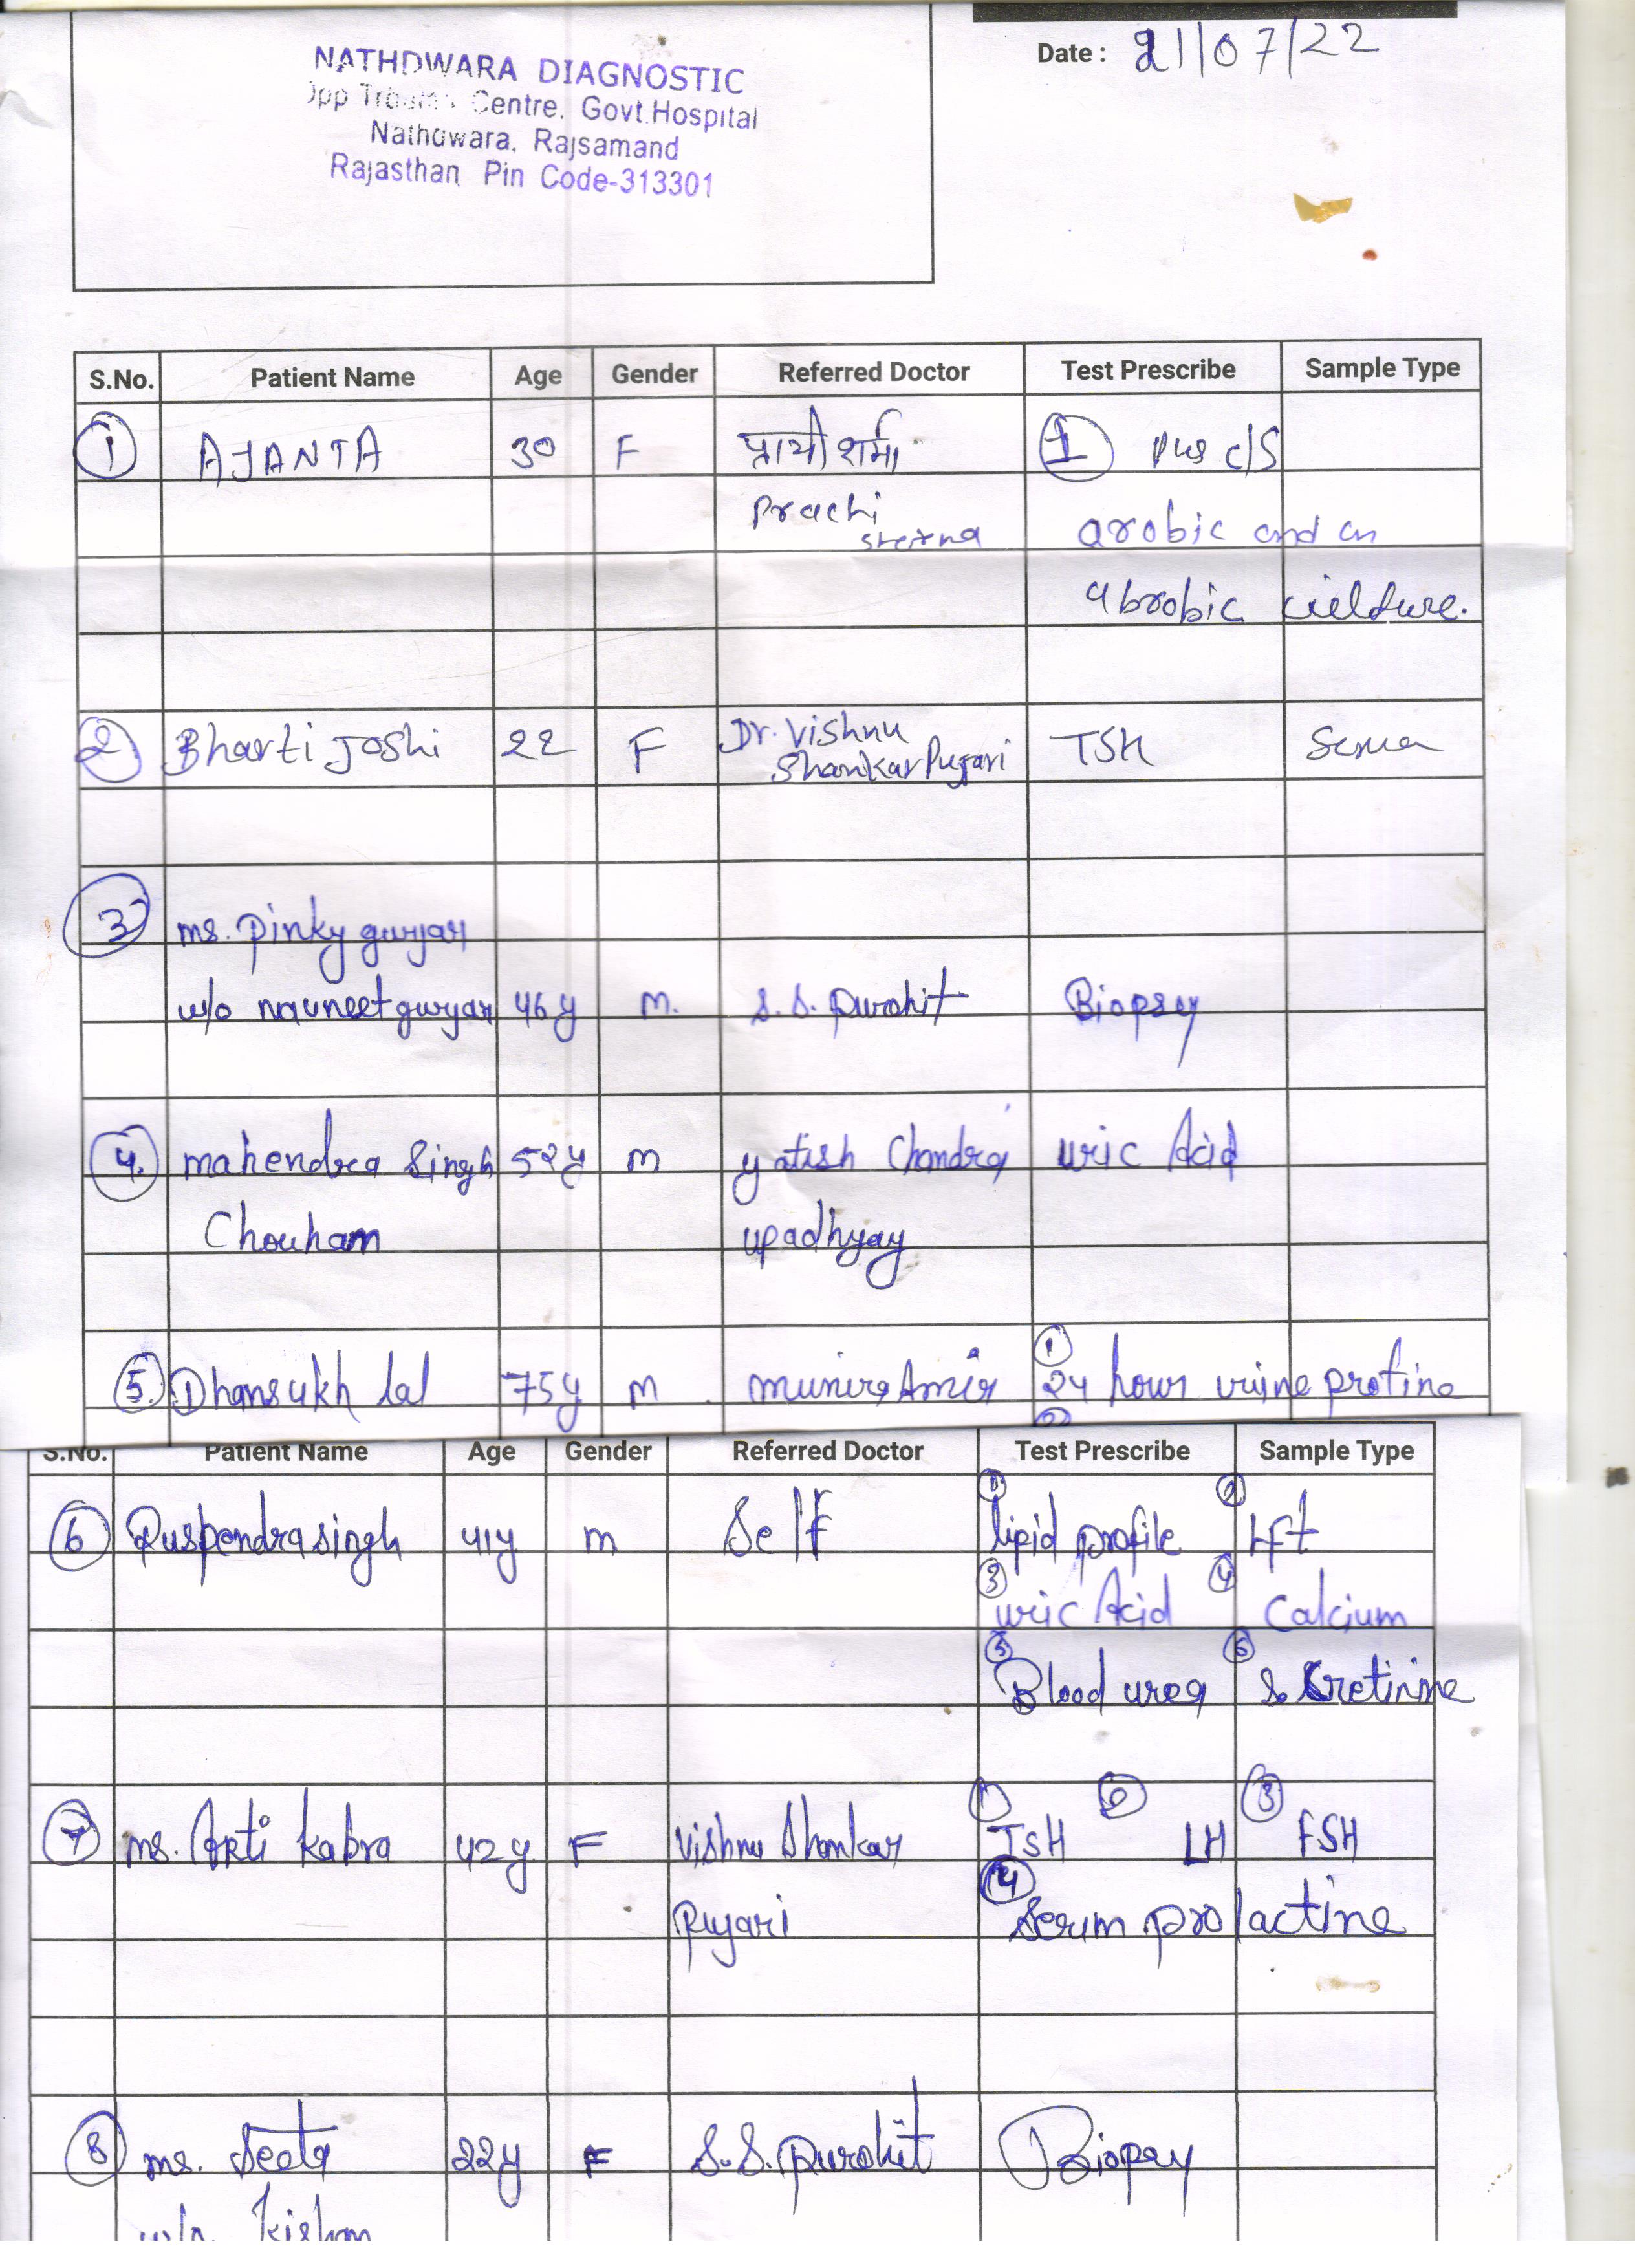 NATHDWARA DIAGNOSTIC
Opp Centre, Govt.Hospital
Nathdwara, Rajsamand
Rajasthan Pin Code-313301
Date : 21/07/22
S.No. Patient Name Age Gender Referred Doctor Test Prescribe Sample Type
1 AJANTA 30 F प्राची शर्मा 1 Pus c/s
Prachi
arobic and an
abrobic culture.
2 Bharti Joshi 22 F Dr. Vishnu
Shankar Pujari TSH
3 ms. Pinky gurjar
w/o navneet gurjar 46 y m. S.S. Purohit Biopsy
4. mahendra Singh 52y m yatish Chandra uric Acid
Chouham upadhyay
1
5. Dhansukh lal 75y m munira Amir 24 hour urine protine
2
S.No. Patient Name Age Gender Referred Doctor Test Prescribe Sample Type
1 2
6 Puspendra singh 41y m Self lipid profile Lft
3 4
uric Acid Calcium
5 6
Blood urea S. Cretinine
1 2 3
7 ms. Arti kabra 42y F Vishnu Shankar TSH LH FSH
4
Pujari Serum prolactine
8 ms. Seeta 22y F S.S. Purohit Biopsy
w/o kishan